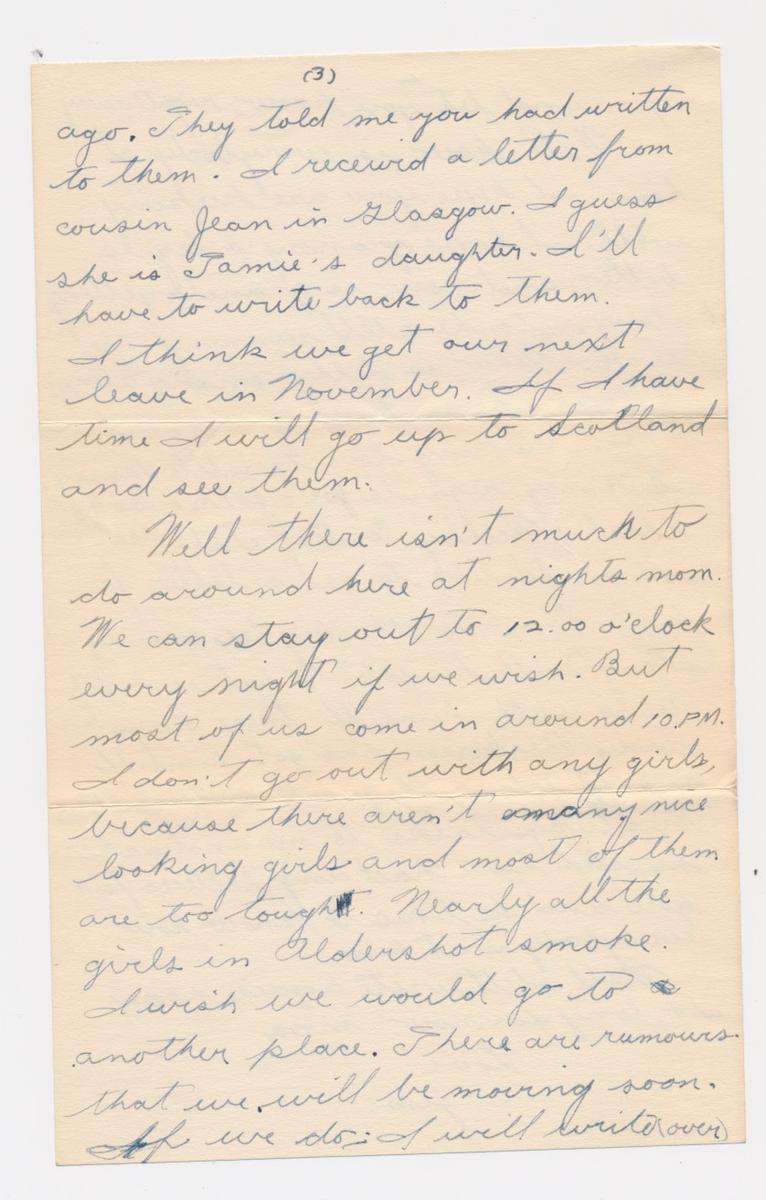 (3)
ago. They told me you had written
to them. I receivid a letter from
cousin Jean in Glasgow. I guess
she is Jamie's daughter. I'll
have to write back to them.
I think we get our next
leave in November. If I have
time I will go up to Scotland
and see them.
Well there isn't much to
do around here at nights mom.
We can stay out to 12.00 o'clock
every night if we wish. But
most of us come in around 10.P.M.
I don't go out with any girls,
because there aren't many nice
looking girls and most of them
are too tough. Nearly all the
girls in Aldershot smoke.
I wish we would go to
another place. There are rumours
that we will be moving soon.
If we do I will write (over)